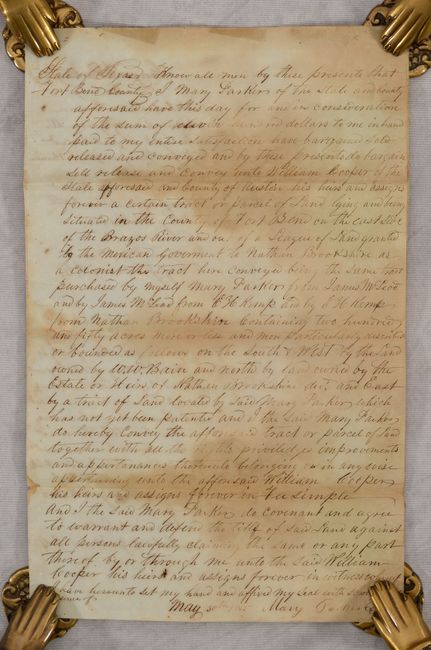 State of Texas Know all men by these presents that
Fort Bend County I Mary Parker of the State and county
afforesaid have this day for and in consideration
of the sum of eleven hundred dollars to me in hand
paid to my entire satisfaction have bargained sold
released and conveyed and by these presents do bargain
sell release and convey unto William Cooper of the
State afforesaid and County of Austin his heirs and assigns
forever a certain tract or parcel of Land lying and being
situated in the County of Fort Bend on the east side
of the Brazos River and out of a League of Land granted
by the Mexican Goverment to Nathan Brookshire as
a colonist the tract here conveyed being the same tract
purchased by myself Mary Parker from James McLeod
and by James McLeod from C H Kemp and by C H Kemp
from Nathan Brookshire Containing two hundred
and fifty acres more or less and more particularly
or bounded as follows on the South & West by the land
owned by and north by land owned by the
Estate or Heirs of Nathan Brookshire and East
by a tract of Land located by Said Mary Parker which
has not yet been patented and I the Said Mary Parker
do hereby Convey the afforesaid tract or parcel of Land
together with all the priviledges improvements
and appertanances thereunto belonging or in any wise
appertaining unto the afforesaid William Cooper
his heirs and assigns forever in Fee Simple
And I the Said Mary Parker do covenant and agree
to warrant and defend the title of said Land against
all persons lawfully claiming the same or any part
thereof by or through me unto the Said William
Cooper his heirs and assigns forever in witness whereof
I have hereunto set my hand and affixed my Seal
May 30th Mary Parker